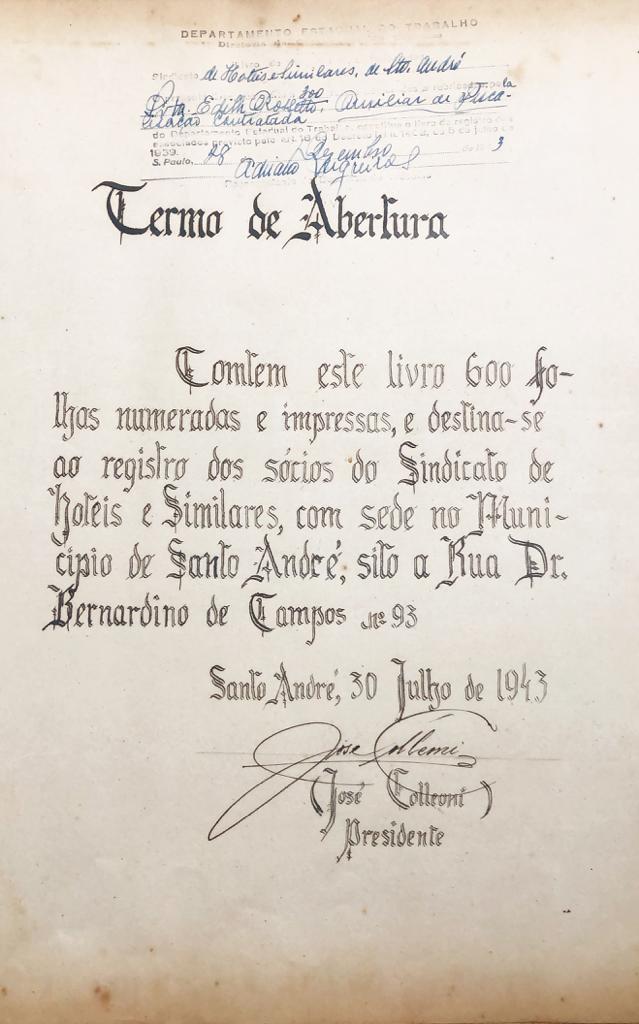 DEPARTAMENTO ESTADUAL DO TRABALHO
Sindicato de Hoteis e Similares, de Sto. André
300
Edith, Auxiliar de Fisca-
lisação Contratada
do Departamento Estadual do Trabalho
1939.
S. Paulo, 28 Dezembro de 3
Termo de Abertura
Comtem este livro 600 fo-
lhas numeradas e impressas, e destina-se
ao registro dos sócios do Sindicato de
Hoteis e Similares, com sede no Muni-
cipio de Santo André, sito a Rua Dr.
Bernardino de Campos nº 93
Santo André, 30 Julho de 1943
José Colleoni
(José Colleoni)
Presidente